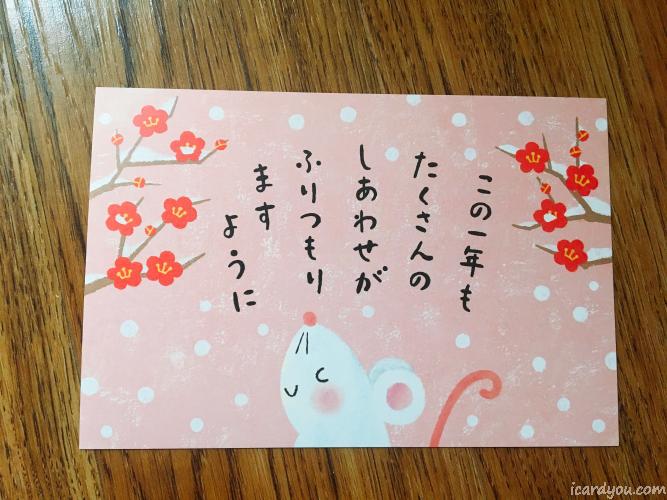 この一年も
たくさんの
しあわせが
ふりつもり
ます
ように
icardyou.com